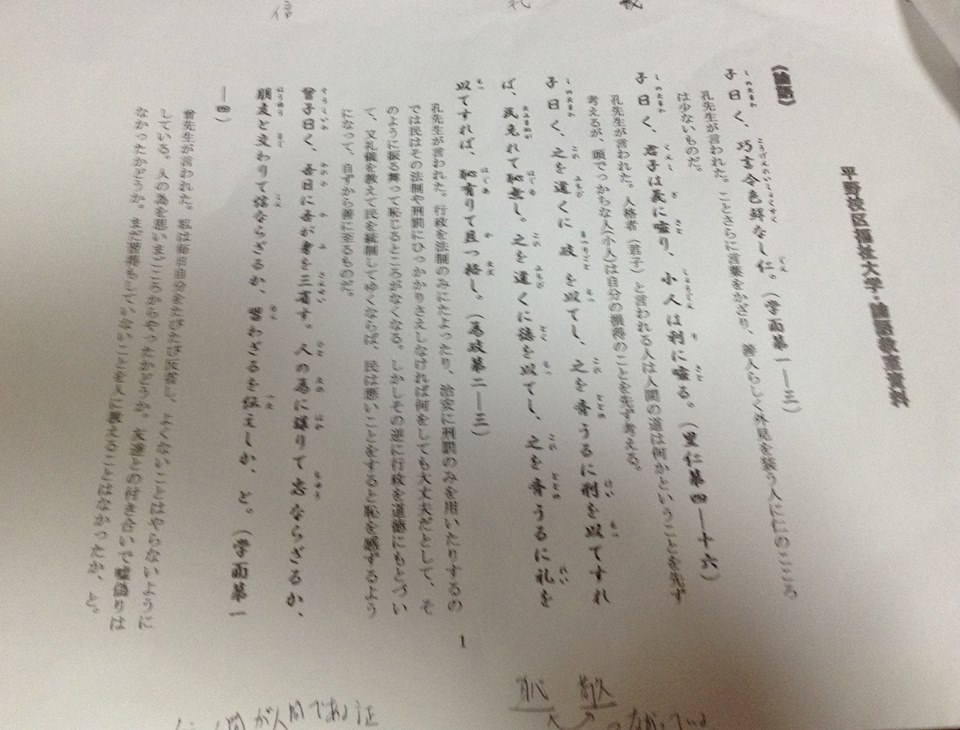 平野校区福祉大学・論語教室資料
《論語》
子曰く、巧言令色鮮なし仁。(学而第一―三)
孔先生が言われた。ことさらに言葉をかざり、善人らしく外見を装う人に仁のこころ
は少ないものだ。
子曰く、君子は義に喩り、小人は利に喩る。(里仁第四―十六)
孔先生が言われた。人格者(君子)と言われる人は人間の道は何かということを先ず
考えるが、頭でっかちな人(小人)は自分の損得のことを先ず考える。
子曰く、之を道くに政を以てし、之を斉うるに刑を以てすれ
ば、民免れて恥無し。之を道くに徳を以てし、之を斉うるに礼を
以てすれば、恥有りて且つ格し。(為政第二―三)
孔先生が言われた。行政を法制のみにたよったり、治安に刑罰のみを用いたりするの
では民はその法制や刑罰にひっかかりさえしなければ何をしても大丈夫だとして、そ
のように振る舞って恥じるところがなくなる。しかしその逆に行政を道徳にもとづい
て、又礼儀を教えて民を統制してゆくならば、民は悪いことをすると恥を感ずるよう
になって、自ずから善に至るものだ。
曾子曰く、吾日に吾が身を三省す。人の為に謀りて忠ならざるか、
朋友と交わりて信ならざるか、習わざるを伝えしか、と。(学而第一
―四)
曾先生が言われた。私は毎日自分をたびたび反省し、よくないことはやらないように
している。人の為を思いまごころからやったかどうか。友達との付き合いで嘘偽りは
なかったかどうか。まだ習得もしていないことを人に教えることはなかったか、と。
1
信
礼
恥
人間が人間である証